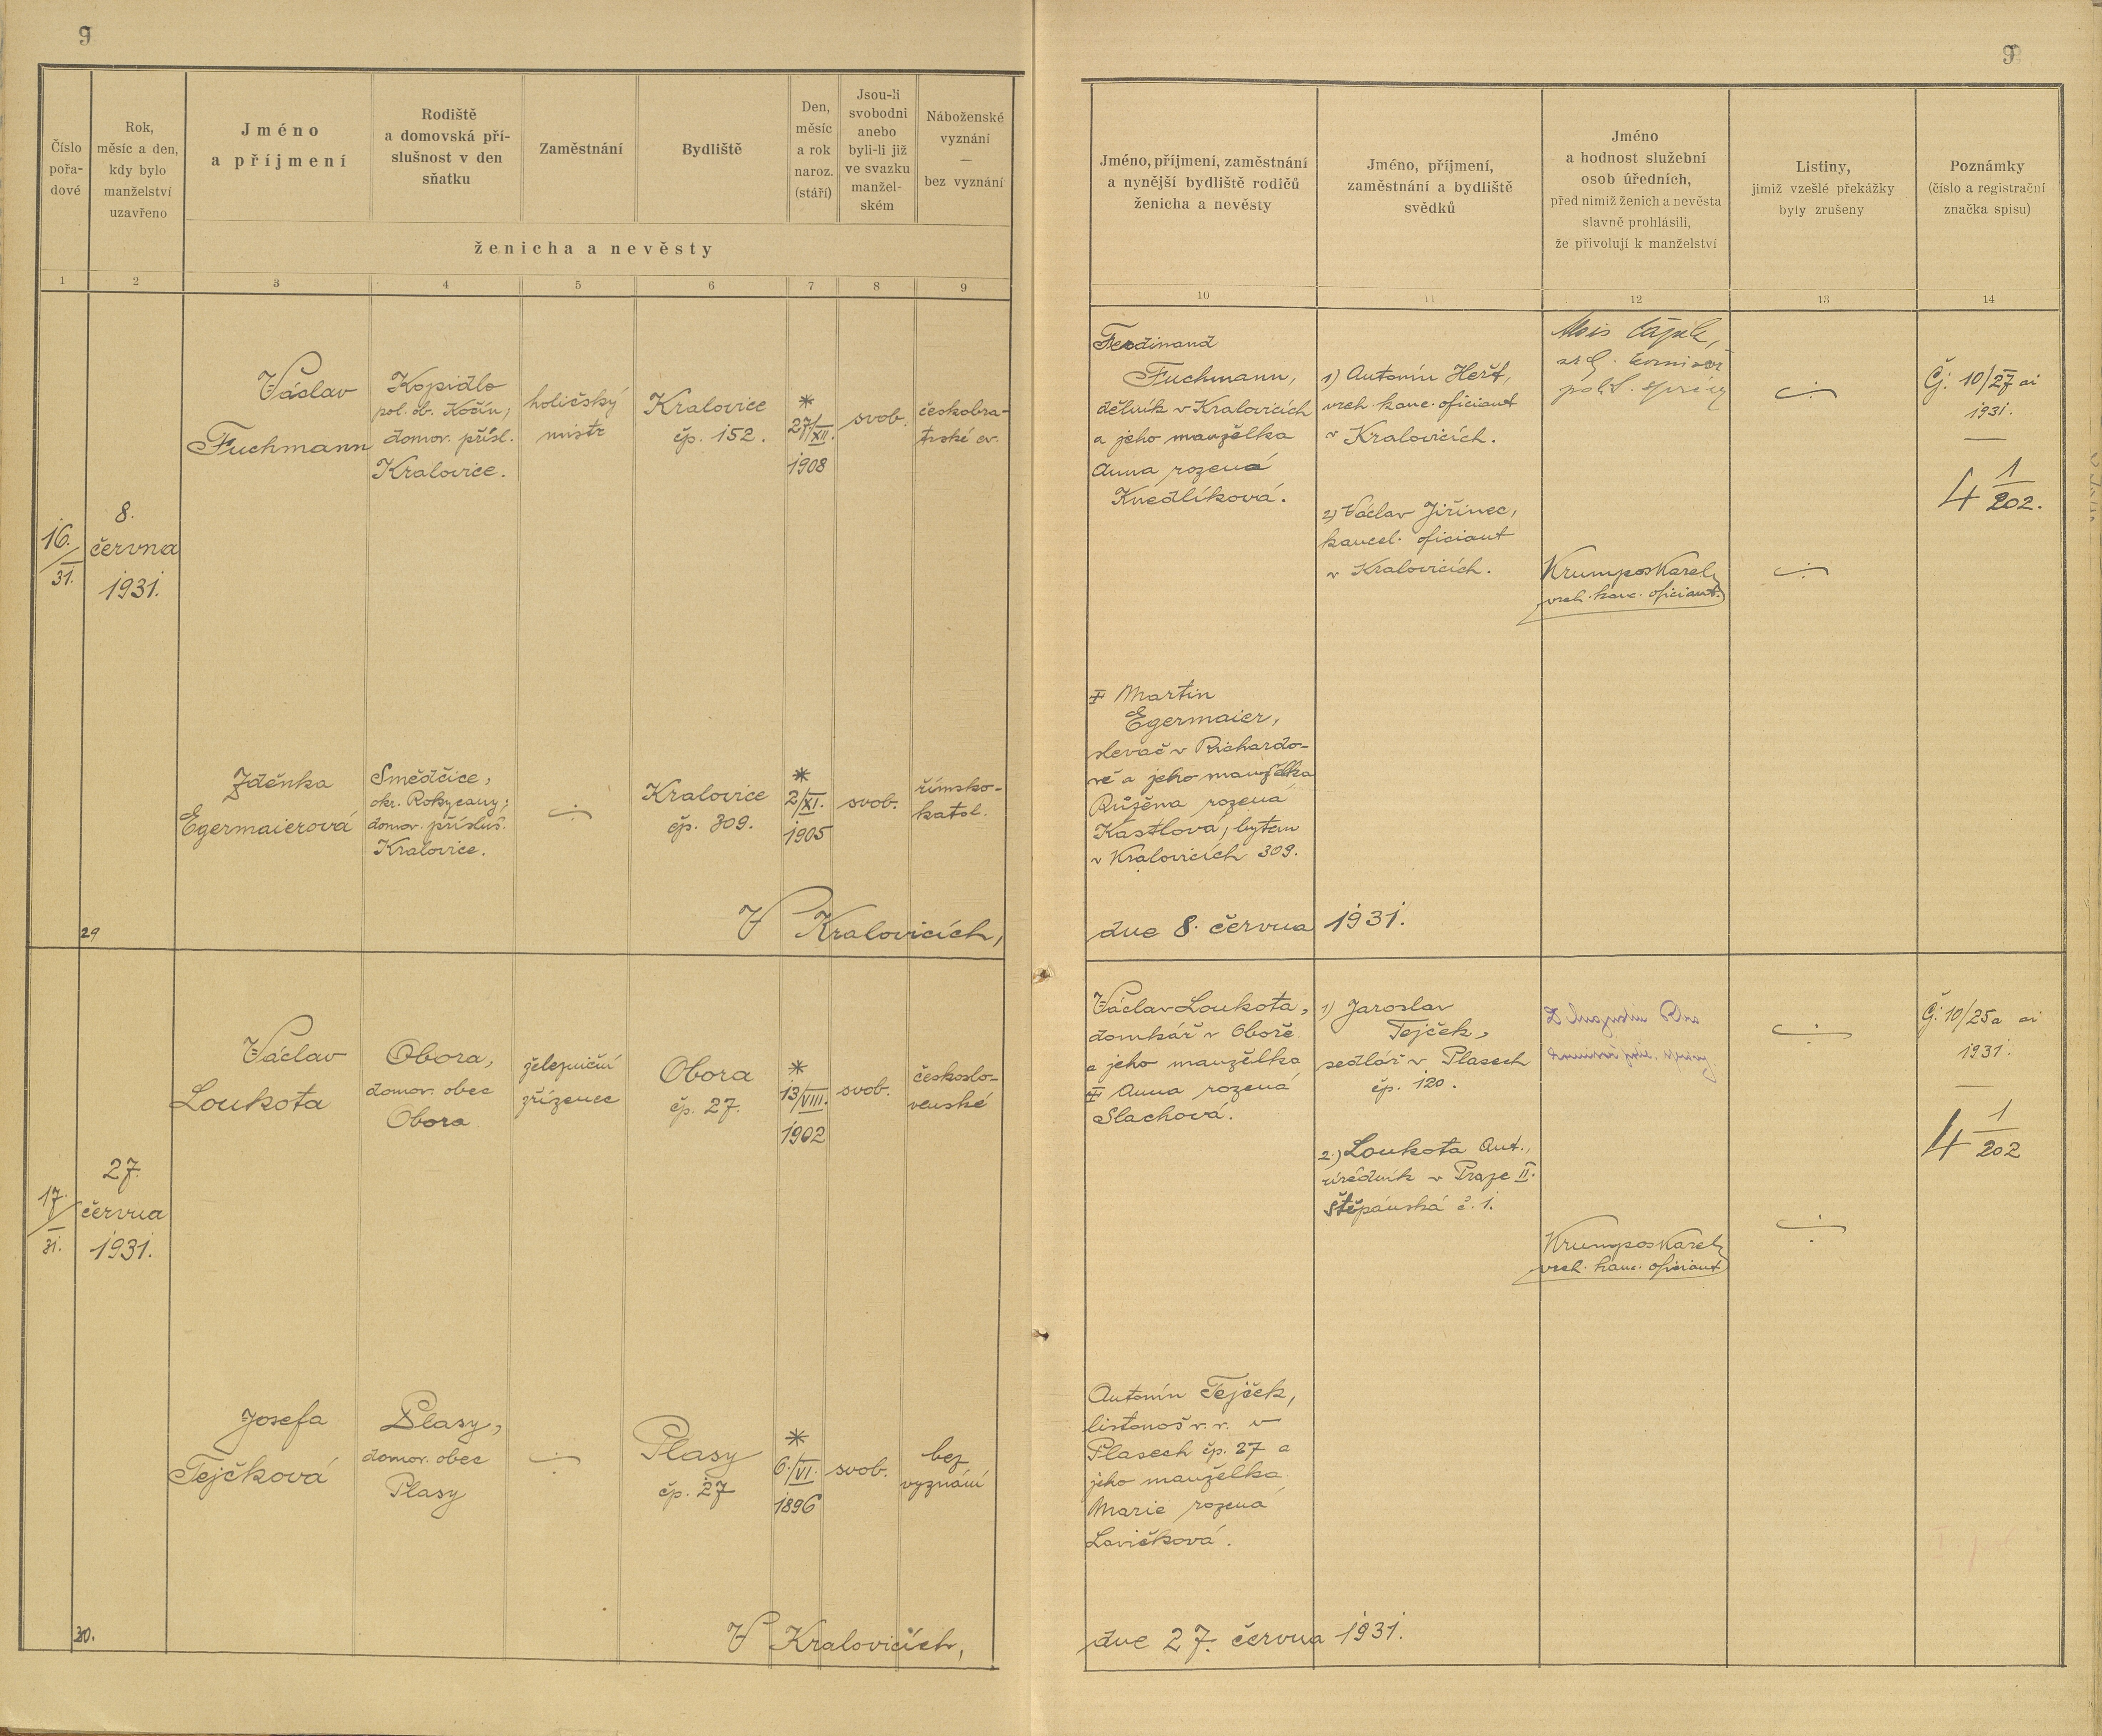 9
Číslo
pořa-
dové
Rok,
měsíc a den,
kdy bylo
manželství
uzavřeno
Jméno
a příjmení
Rodiště
a domovská pří-
slušnost v den
sňatku
Zaměstnání
Bydliště
Den,
měsíc
a rok
naroz.
(stáří)
Jsou-li
svobodni
anebo
byli-li již
ve svazku
manžel-
ském
Náboženské
vyznání
—
bez vyznání
ženicha a nevěsty
1 2 3 4 5 6 7 8 9
16.
31.
8.
června
1931.
Václav
Fuchmann
Kopidlo
pol. ob. Kočín,
domov. přísl.
Kralovice.
holičský
mistr
Kralovice
čp. 152.
*
27/XII.
1908
svob.
českobra-
trské ev.
Zděnka
Egermaierová
Smědčice,
okr. Rokycany;
domov. přísluš.
Kralovice.
Kralovice
čp. 309.
*
2/XI.
1905
svob.
římsko-
katol.
29
V Kralovicích,
17.
31.
27.
června
1931.
Václav
Loukota
Obora,
domov. obec
Obora
železniční
zřízenec
Obora
čp. 27.
*
13/VIII.
1902
svob.
českoslo-
venské
Josefa
Tejčková
Plasy,
domov. obec
Plasy
Plasy
čp. 27
*
6./VI.
1896
svob.
bez
vyznání
30.
V Kralovicích,
9
Jméno, příjmení, zaměstnání
a nynější bydliště rodičů
ženicha a nevěsty
Jméno, příjmení,
zaměstnání a bydliště
svědků
Jméno
a hodnost služební
osob úředních,
před nimiž ženich a nevěsta
slavně prohlásili,
že přivolují k manželství
Listiny,
jimiž vzešlé překážky
byly zrušeny
Poznámky
(číslo a registrační
značka spisu)
10 11 12 13 14
Ferdinand
Fuchmann,
dělník v Kralovicích
a jeho manželka
Anna rozená
Knedlíková.
1) Antonín Heřt,
vrch. kanc. oficiant
v Kralovicích.
2) Václav Jiřinec,
kancel. oficiant
v Kralovicích.
Alois Čapek,
Krumpos Karel,
vrch. kanc. oficiant.
Čj. 10/27 ai
1931.
4 1/202.
Martin
Egermaier,
slevač v Richardo-
vě a jeho manželka
Růžena rozená
Kastlova, bytem
v Kralovicích 309.
dne 8. června 1931.
Václav Loukota,
domkář v Oboře
a jeho manželka
Anna rozená
Slachová.
1) Jaroslav
Tejček,
sedlář v Plasech
čp. 120.
2.) Loukota Ant.,
úředník v Praze II.
Štěpánská č. 1.
Krumpos Karel,
vrch. kanc. oficiant
Čj. 10/25a ai
1931.
4 1/202
Antonín Tejček,
listonoš v. v. v
Plasech čp. 27 a
jeho manželka
Marie rozená
Lavičková.
dne 27. června 1931.